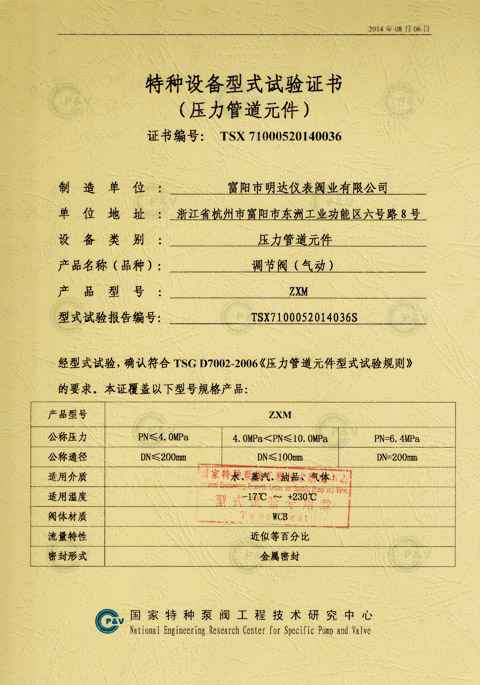 2014 年 08 月 06 日
特种设备型式试验证书
（压力管道元件）
证书编号： TSX 71000520140036
制造单位： 富阳市明达仪表阀业有限公司
单位地址： 浙江省杭州市富阳市东洲工业功能区六号路 8 号
设备类别： 压力管道元件
产品名称（品种）： 调节阀（气动）
产品型号： ZXM
型式试验报告编号： TSX7100052014036S
经型式试验，确认符合 TSG D7002-2006《压力管道元件型式试验规则》
的要求。本证覆盖以下型号规格产品：
产品型号 ZXM
公称压力 PN≤4.0MPa 4.0MPa＜PN≤10.0MPa PN=6.4MPa
公称通径 DN≤200mm DN≤100mm DN=200mm
适用介质 水、蒸汽、油品、气体
适用温度 -17℃ ～ +230℃
阀体材质 WCB
流量特性 近似等百分比
密封形式 金属密封
P&V 国家特种泵阀工程技术研究中心
National Engineering Research Center for Specific Pump and Valve